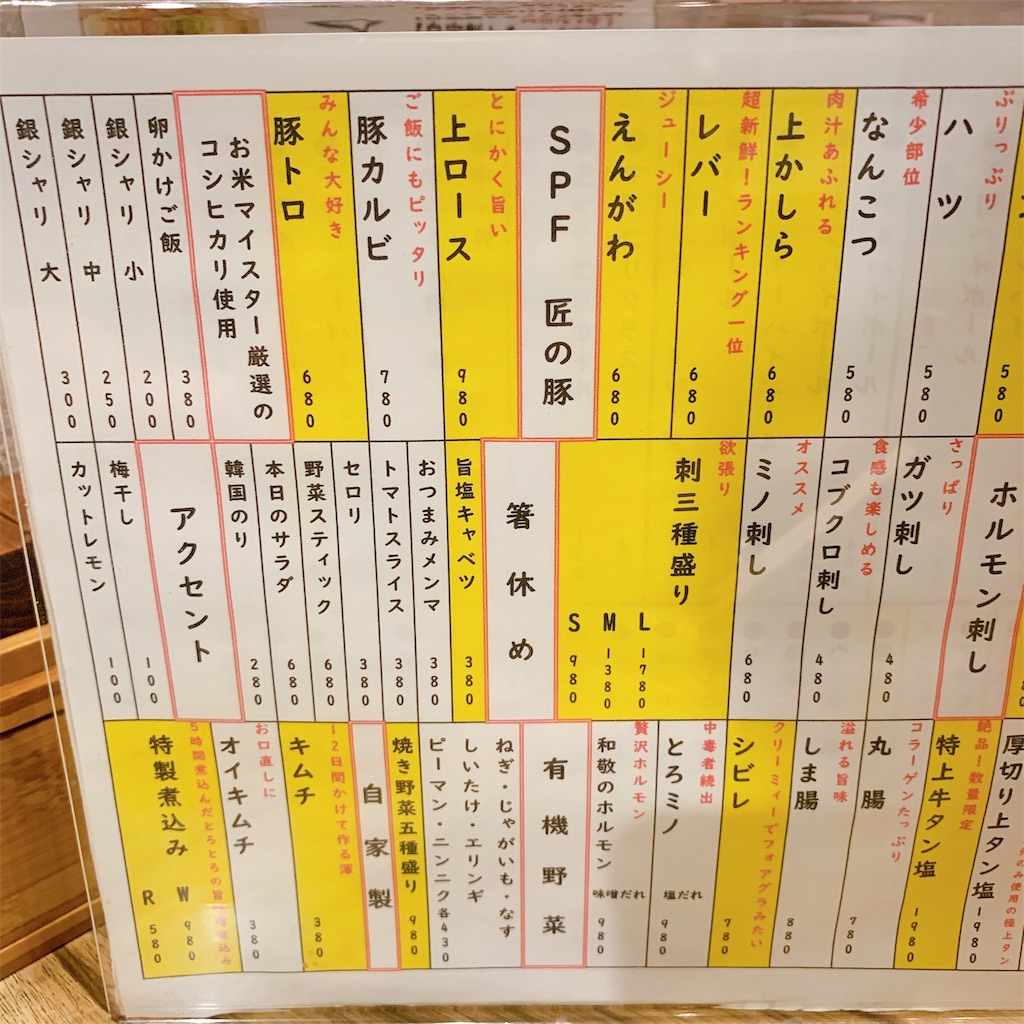 580
ぷりっぷり
ハツ
580
希少部位
なんこつ
580
肉汁あふれる
上かしら
680
超新鮮！ランキング一位
レバー
680
ジューシー
えんがわ
680
SPF 匠の豚
とにかく旨い
上ロース
980
ご飯にもピッタリ
豚カルビ
780
みんな大好き
豚トロ
680
お米マイスター厳選の
コシヒカリ使用
卵かけご飯
380
銀シャリ 小
200
銀シャリ 中
250
銀シャリ 大
300
ホルモン刺し
さっぱり
ガツ刺し
480
食感も楽しめる
コブクロ刺し
480
オススメ
ミノ刺し
680
欲張り
刺三種盛り
L 1780
M 1380
S 980
箸休め
旨塩キャベツ
380
おつまみメンマ
380
トマトスライス
380
セロリ
380
野菜スティック
680
本日のサラダ
680
韓国のり
280
アクセント
梅干し
100
カットレモン
100
厚切り上タン塩
1980
絶品！数量限定
特上牛タン塩
1980
コラーゲンたっぷり
丸腸
780
溢れる旨味
しま腸
880
クリーミィーでフォアグラみたい
シビレ
780
中毒者続出
とろミノ
塩だれ
980
贅沢ホルモン
和敬のホルモン
味噌だれ
980
有機野菜
ねぎ・じゃがいも・なす
しいたけ・エリンギ
ピーマン・ニンニク各430
焼き野菜五種盛り
980
自家製
12日間かけて作る渾
キムチ
380
お口直しに
オイキムチ
380
5時間煮込んだとろとろの旨
特製煮込み
W 980
R 580